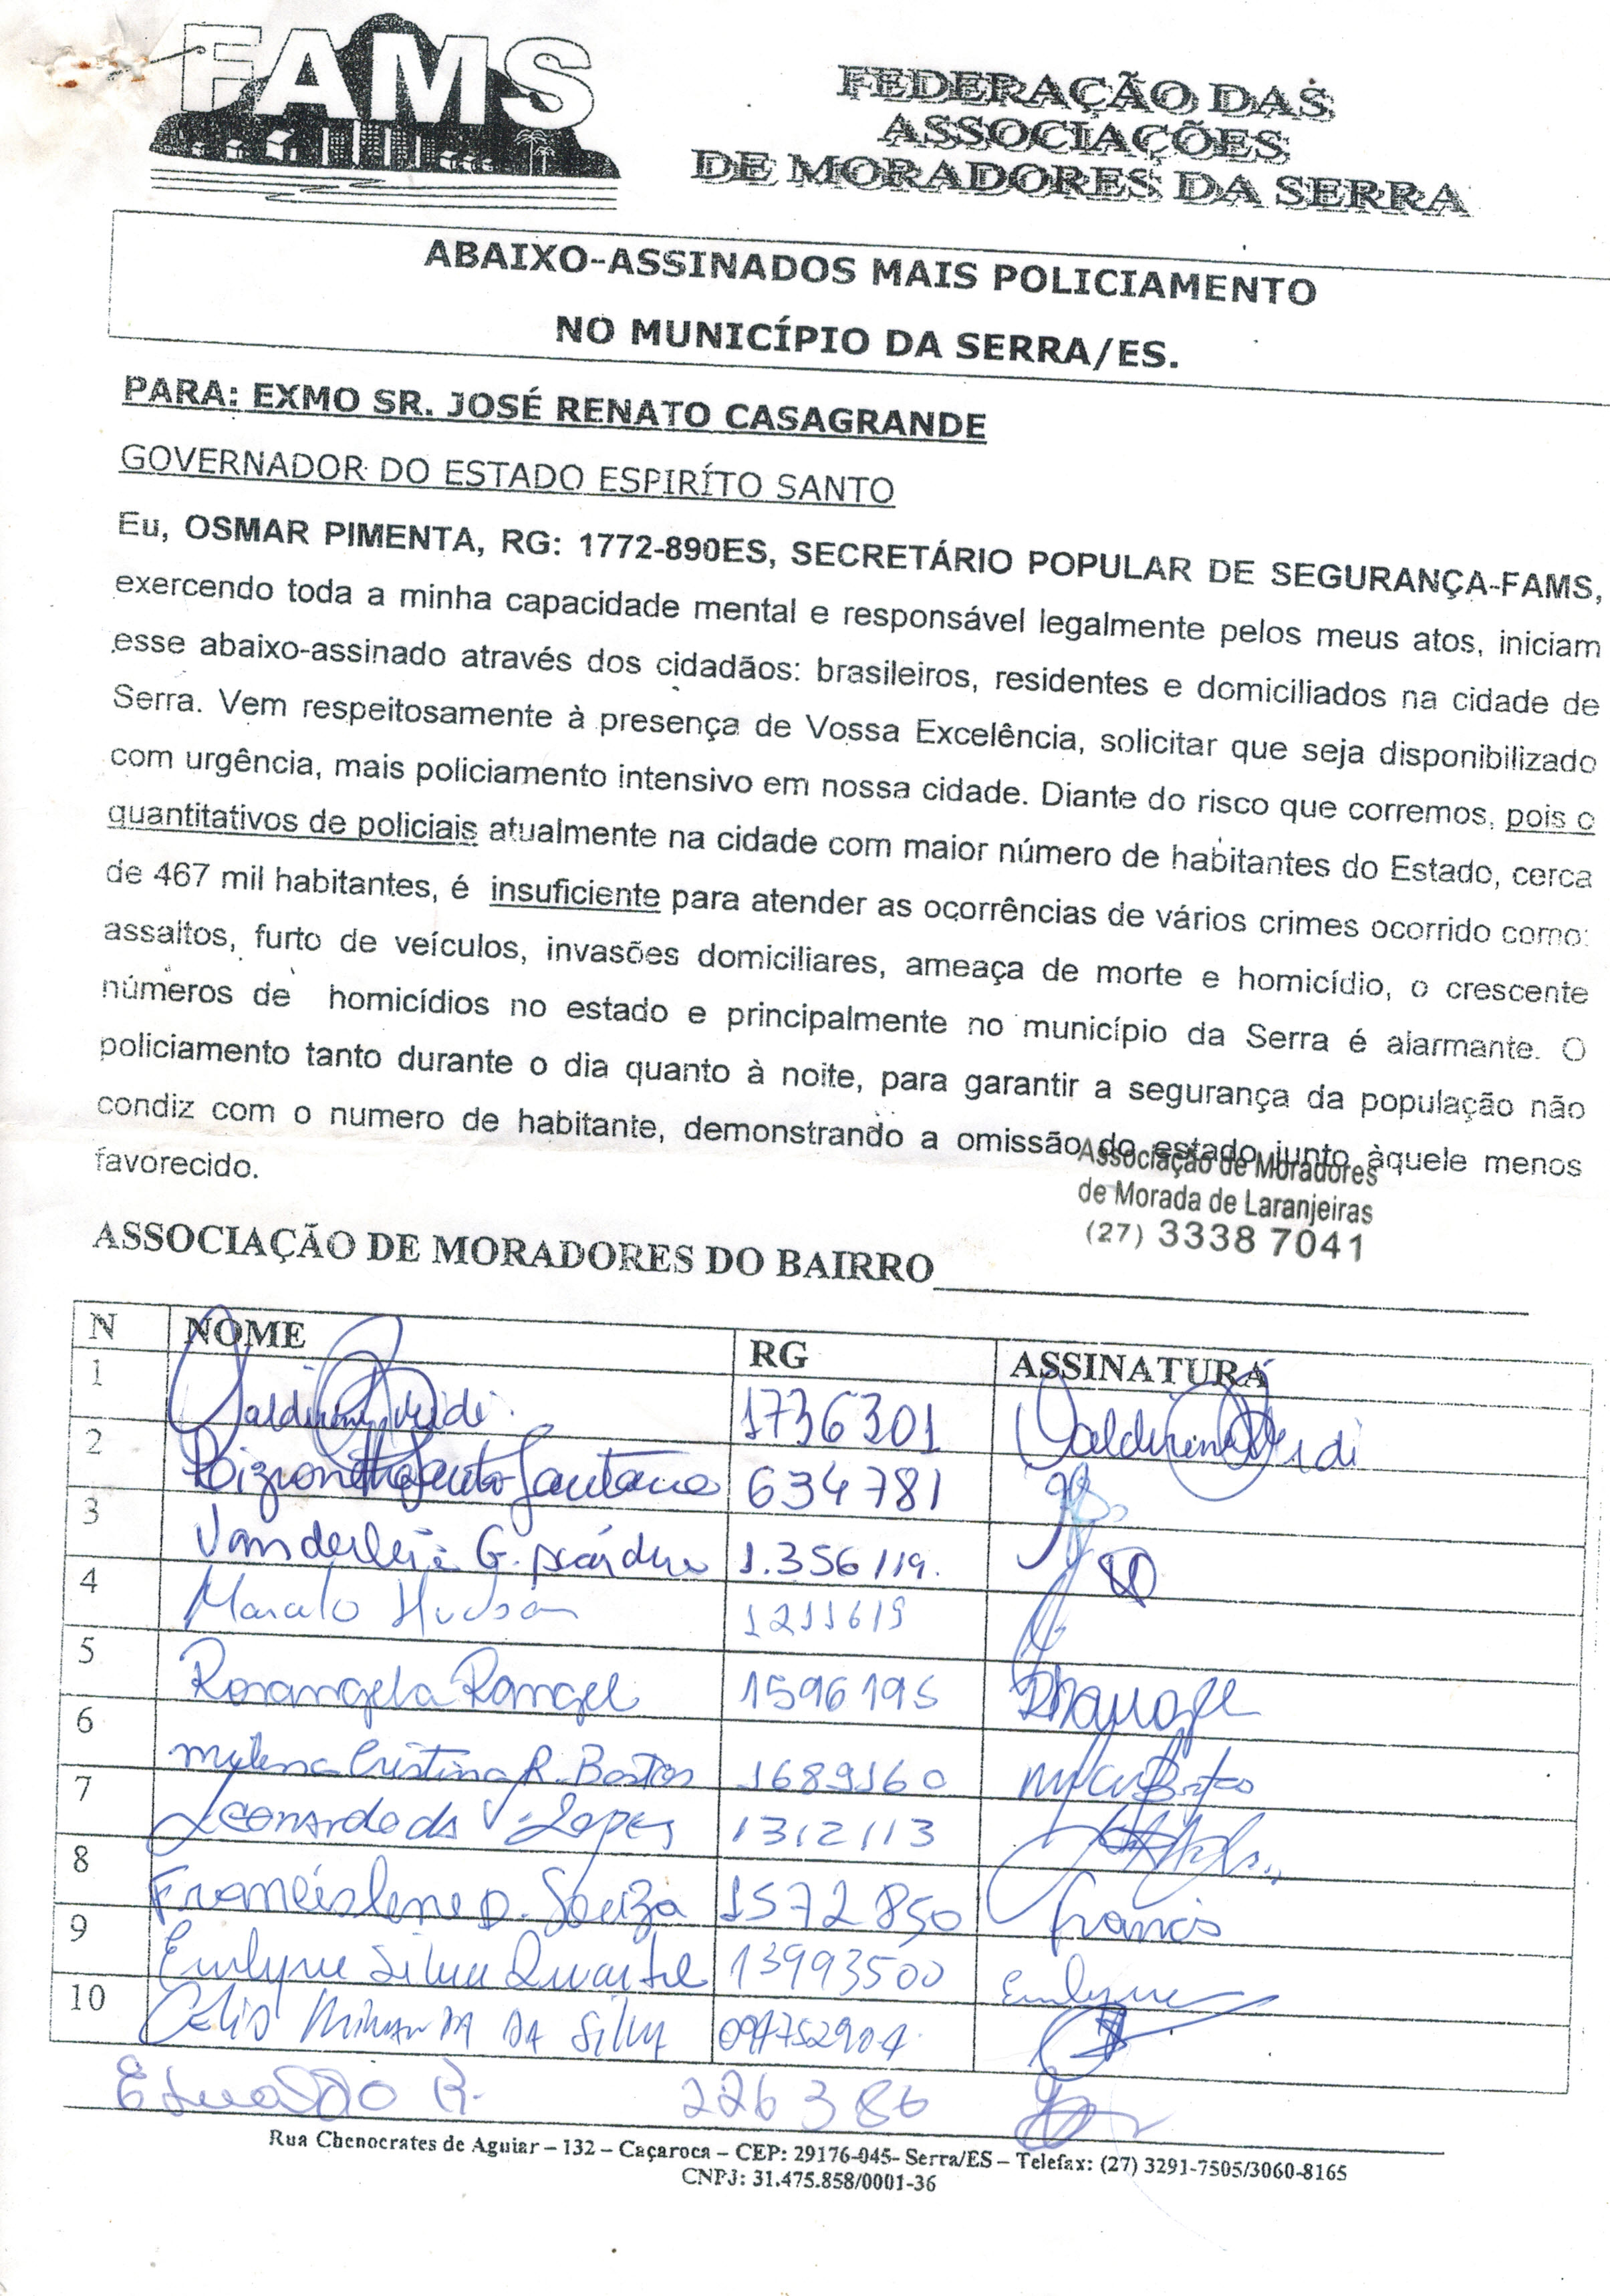 FAMS
FEDERAÇÃO DAS
ASSOCIAÇÕES
DE MORADORES DA SERRA
ABAIXO-ASSINADOS MAIS POLICIAMENTO
NO MUNICÍPIO DA SERRA/ES.
PARA: EXMO SR. JOSÉ RENATO CASAGRANDE
GOVERNADOR DO ESTADO ESPIRÍTO SANTO
Eu, OSMAR PIMENTA, RG: 1772-890ES, SECRETÁRIO POPULAR DE SEGURANÇA-FAMS,
exercendo toda a minha capacidade mental e responsável legalmente pelos meus atos, iniciam
esse abaixo-assinado através dos cidadãos: brasileiros, residentes e domiciliados na cidade de
Serra. Vem respeitosamente à presença de Vossa Excelência, solicitar que seja disponibilizado
com urgência, mais policiamento intensivo em nossa cidade. Diante do risco que corremos, pois o
quantitativos de policiais atualmente na cidade com maior número de habitantes do Estado, cerca
de 467 mil habitantes, é insuficiente para atender as ocorrências de vários crimes ocorrido como:
assaltos, furto de veículos, invasões domiciliares, ameaça de morte e homicídio, o crescente
números de homicídios no estado e principalmente no município da Serra é alarmante. O
policiamento tanto durante o dia quanto à noite, para garantir a segurança da população não
condiz com o numero de habitante, demonstrando a omissão do estado junto àquele menos
favorecido.
Associação de Moradores
de Morada de Laranjeiras
(27) 3338 7041
ASSOCIAÇÃO DE MORADORES DO BAIRRO
N NOME RG ASSINATURA
1 1736301
2 634781
3 Vanderlei G. 1.356119.
4 Hudson 1211619
5 Rosangela Rangel 1596195
6 Mylena Cristina R. Bastos 1689160
7 Leonardo da V. Lopes 1312113
8 Francislene D. Souza 1572850 Francis
9 Emlyne Silva Duarte 13993500 Emlyne
10 Celio Miranda da Silva 094752904
R. 226386
Rua Chenocrates de Aguiar – 132 – Caçaroca – CEP: 29176-045- Serra/ES – Telefax: (27) 3291-7505/3060-8165
CNPJ: 31.475.858/0001-36